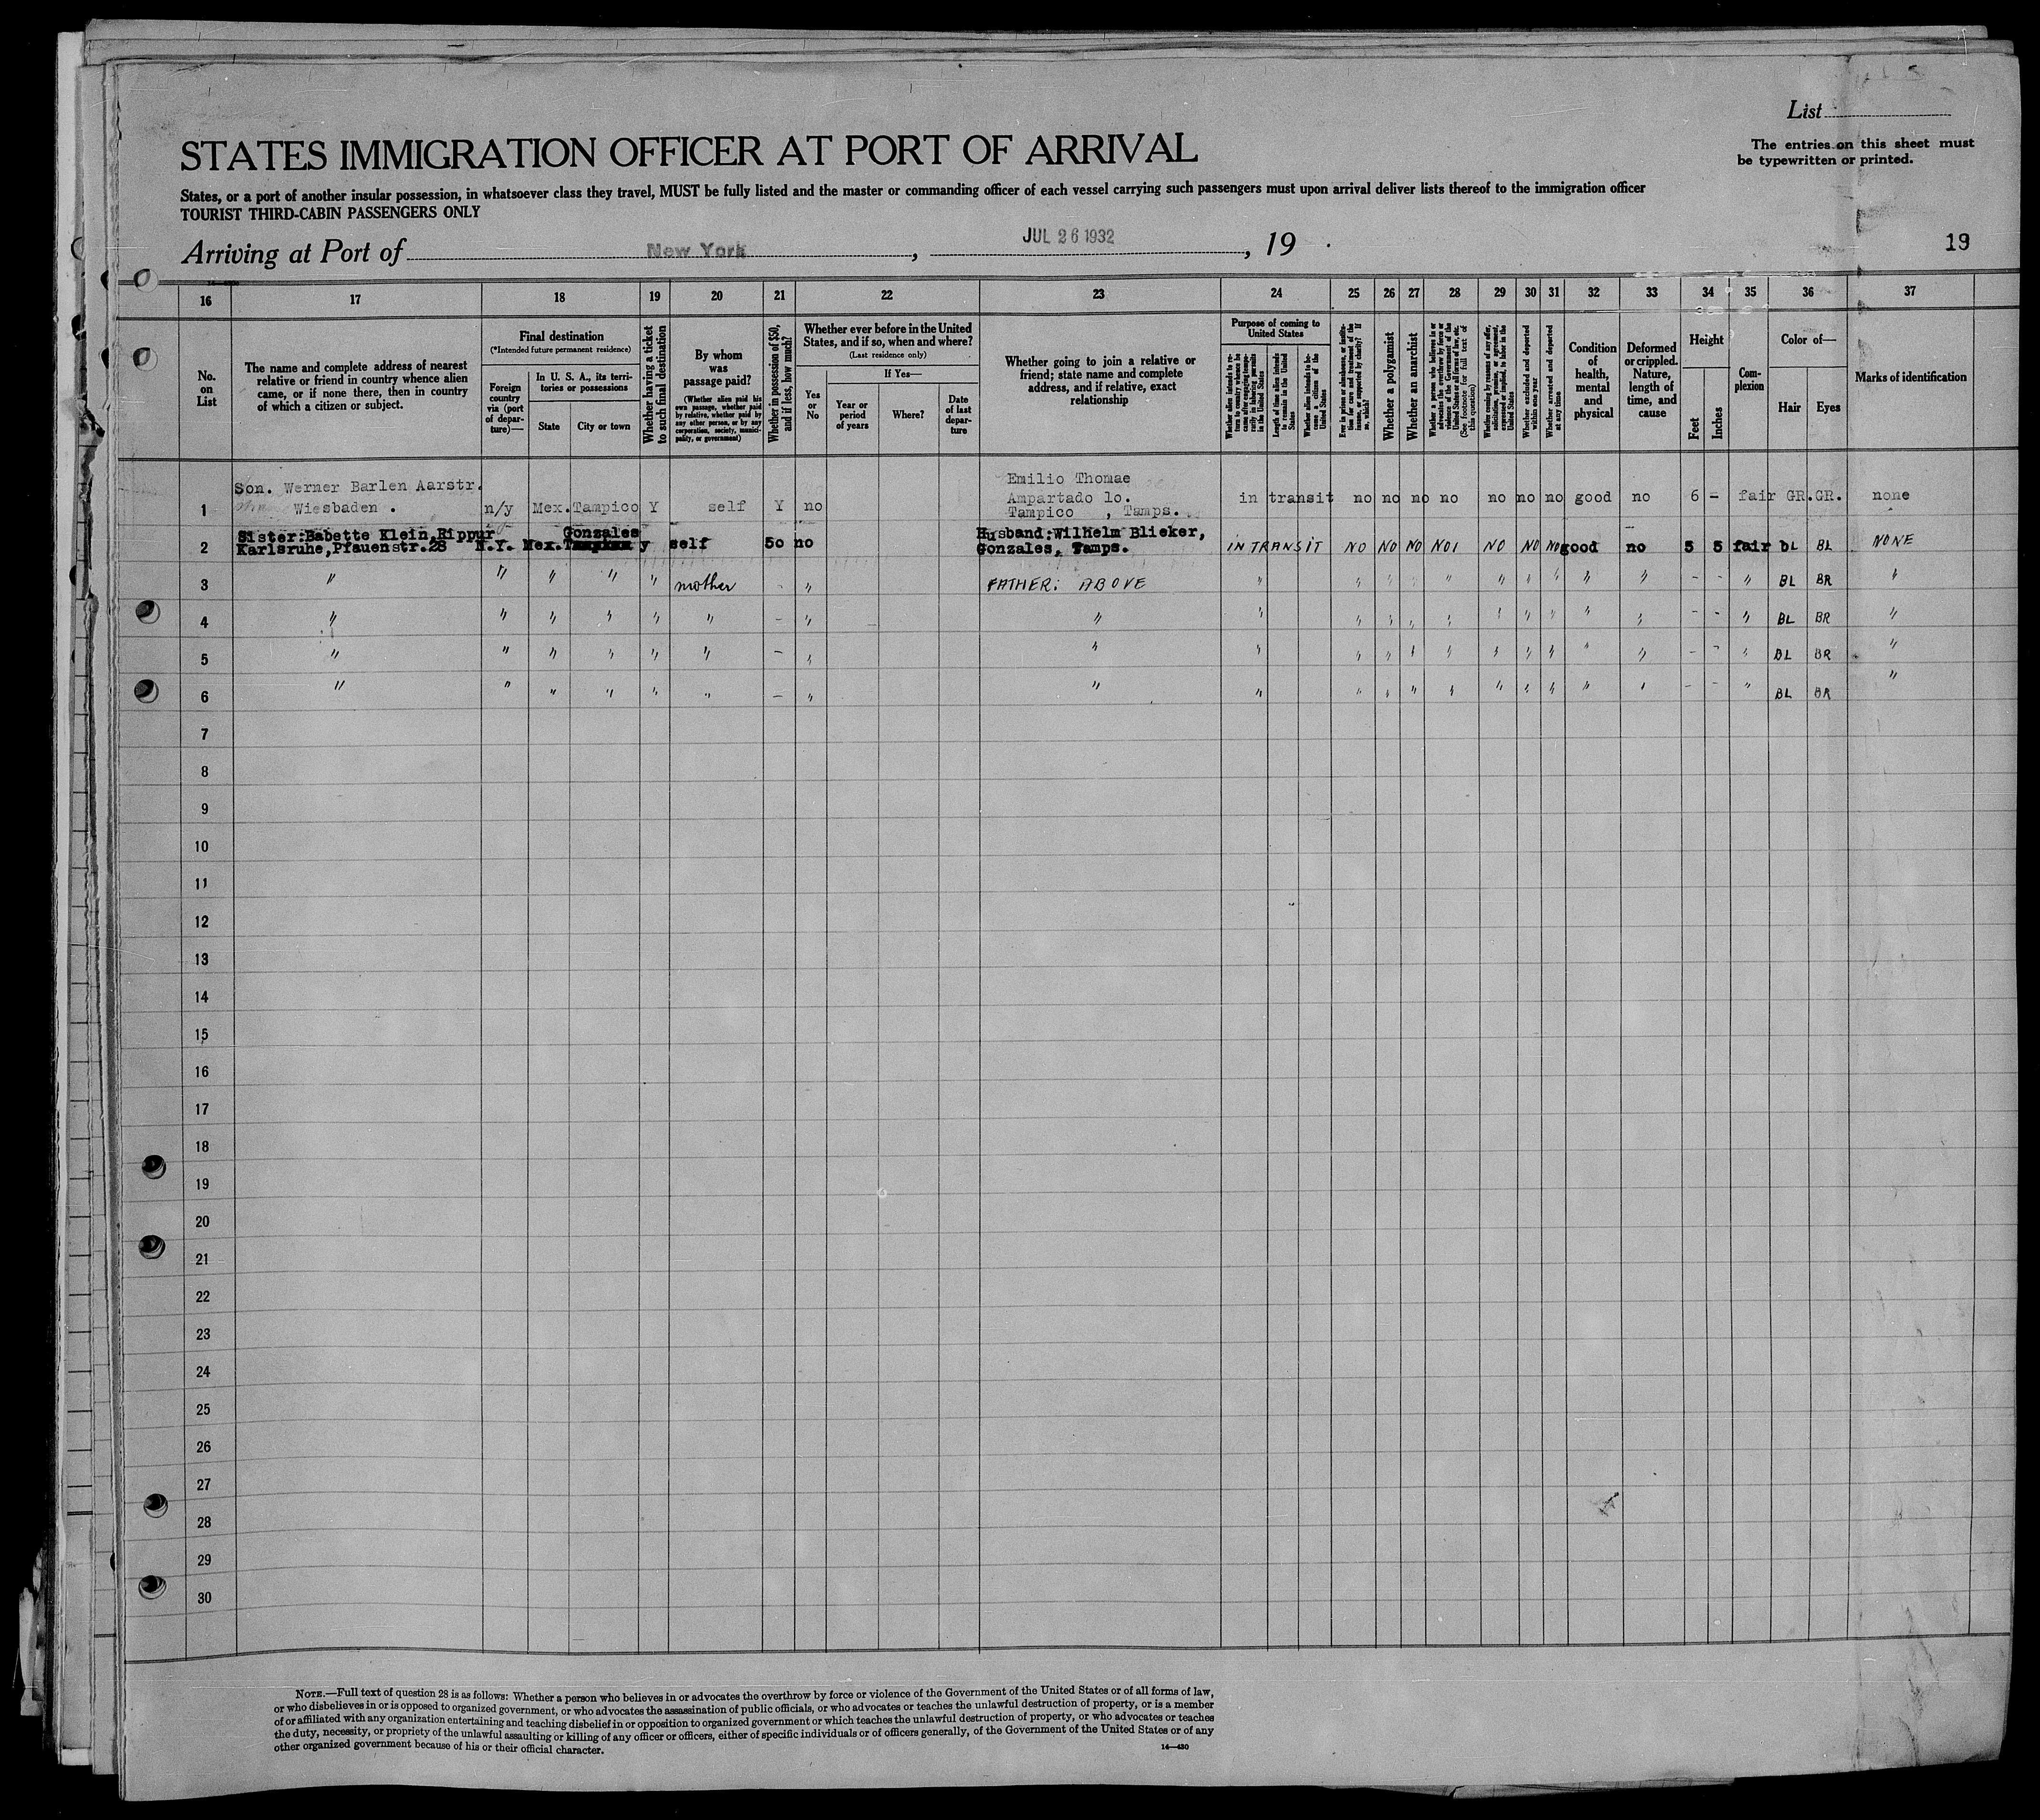 List
STATES IMMIGRATION OFFICER AT PORT OF ARRIVAL
The entries on this sheet must
be typewritten or printed.
States, or a port of another insular possession, in whatsoever class they travel, MUST be fully listed and the master or commanding officer of each vessel carrying such passengers must upon arrival deliver lists thereof to the immigration officer
TOURIST THIRD-CABIN PASSENGERS ONLY
Arriving at Port of New York, JUL 26 1932, 19
19
16 17 18 19 20 21 22 23 24 25 26 27 28 29 30 31 32 33 34 35 36 37
No.
on
List
The name and complete address of nearest
relative or friend in country whence alien
came, or if none there, then in country
of which a citizen or subject.
Final destination
(*Intended future permanent residence)
Foreign
country
via (port
of depar-
ture)—
In U. S. A., its terri-
tories or possessions
State
City or town
Whether having a ticket
to such final destination
By whom
was
passage paid?
(Whether alien paid his
own passage, whether paid
by relative, whether paid by
any other person, or by any
corporation, society, munici-
pality, or government)
Whether in possession of $50,
and if less, how much?
Whether ever before in the United
States, and if so, when and where?
(Last residence only)
Yes
or
No
If Yes—
Year or
period
of years
Where?
Date
of last
depar-
ture
Whether going to join a relative or
friend; state name and complete
address, and if relative, exact
relationship
Purpose of coming to
United States
Whether alien intends to re-
turn to country whence he
came after engaging tempo-
rarily in laboring pursuits
in the United States
Length of time alien intends
to remain in the United
States
Whether alien intends to be-
come a citizen of the
United States
Ever in prison or almshouse, or institu-
tion for care and treatment of the
insane, or supported by charity? If
so, which?
Whether a polygamist
Whether an anarchist
Whether a person who believes in or
advocates the overthrow by force or
violence of the Government of the
United States or all forms of law, etc.
(See footnote for full text of
this question)
Whether coming by reason of any offer,
solicitation, promise, or agreement,
expressed or implied, to labor in the
United States
Whether excluded and deported
within one year
Whether arrested and deported
at any time
Condition
of
health,
mental
and
physical
Deformed
or crippled.
Nature,
length of
time, and
cause
Height
Feet
Inches
Com-
plexion
Color of—
Hair
Eyes
Marks of identification
Son. Werner Barlen Aarstr. Emilio Thomae
Ampartado 1o.
1 Wiesbaden . n/y Mex. Tampico Y self Y no Tampico , Tamps. in transit no no no no no no no good no 6 - fair GR. GR. none
Sister:Babette Klein,Rippur Gonzales Husband:Wilhelm Blieker,
2 Karlsruhe,Pfauenstr.28 N.Y. Mex. y self 50 no Gonzales, Tamps. IN TRANSIT NO NO NO NO NO NO NO good no 5 5 fair BL BL NONE
3 " " " " " mother - " FATHER: ABOVE " " " " " " " " " " - - " BL BR "
4 " " " " " " - " " " " " " " " " " " " - - " BL BR "
5 " " " " " " - " " " " " " " " " " " " - - " BL BR "
6 " " " " " " - " " " " " " " " " " " " - - " BL BR "
7
8
9
10
11
12
13
14
15
16
17
18
19
20
21
22
23
24
25
26
27
28
29
30
NOTE.—Full text of question 28 is as follows: Whether a person who believes in or advocates the overthrow by force or violence of the Government of the United States or of all forms of law,
or who disbelieves in or is opposed to organized government, or who advocates the assassination of public officials, or who advocates or teaches the unlawful destruction of property, or is a member
of or affiliated with any organization entertaining and teaching disbelief in or opposition to organized government or which teaches the unlawful destruction of property, or who advocates or teaches
the duty, necessity, or propriety of the unlawful assaulting or killing of any officer or officers, either of specific individuals or of officers generally, of the Government of the United States or of any
other organized government because of his or their official character.
14—430